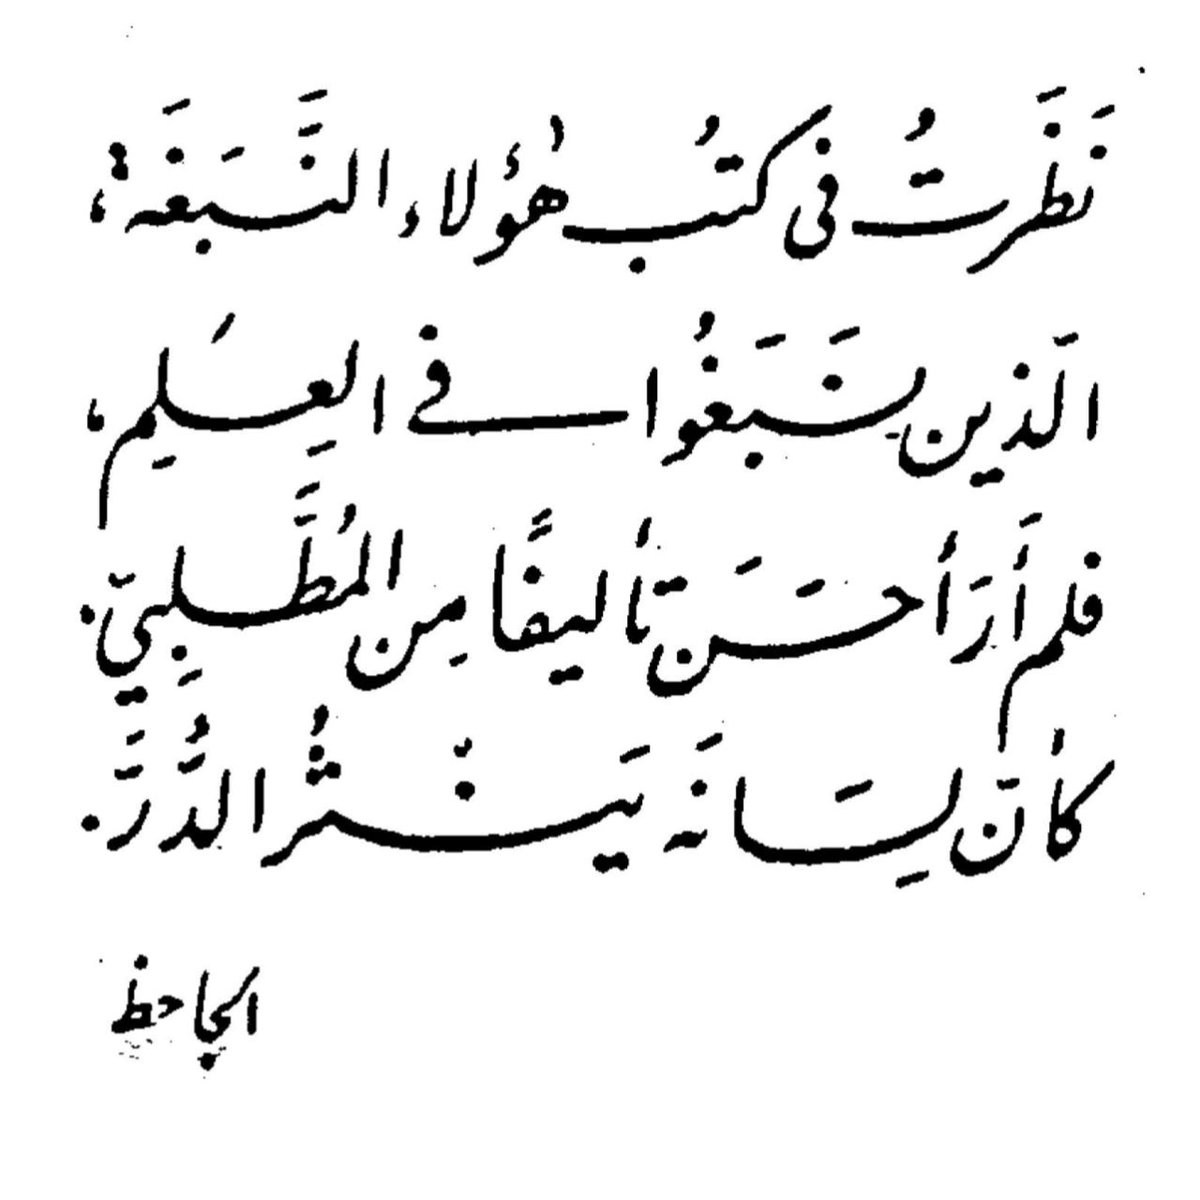 نَظَرْتُ فى كتُب هٰؤُلاء النَّبَغَة،
الّذين نَبَغُوا فى العِلم،
فلم أَرَ أحسَن تأليفًا مِن المُطَّلِبيّ.
كأنّ لِسَانَه يَنْثُر الدُّرَّ.
الجاحظ